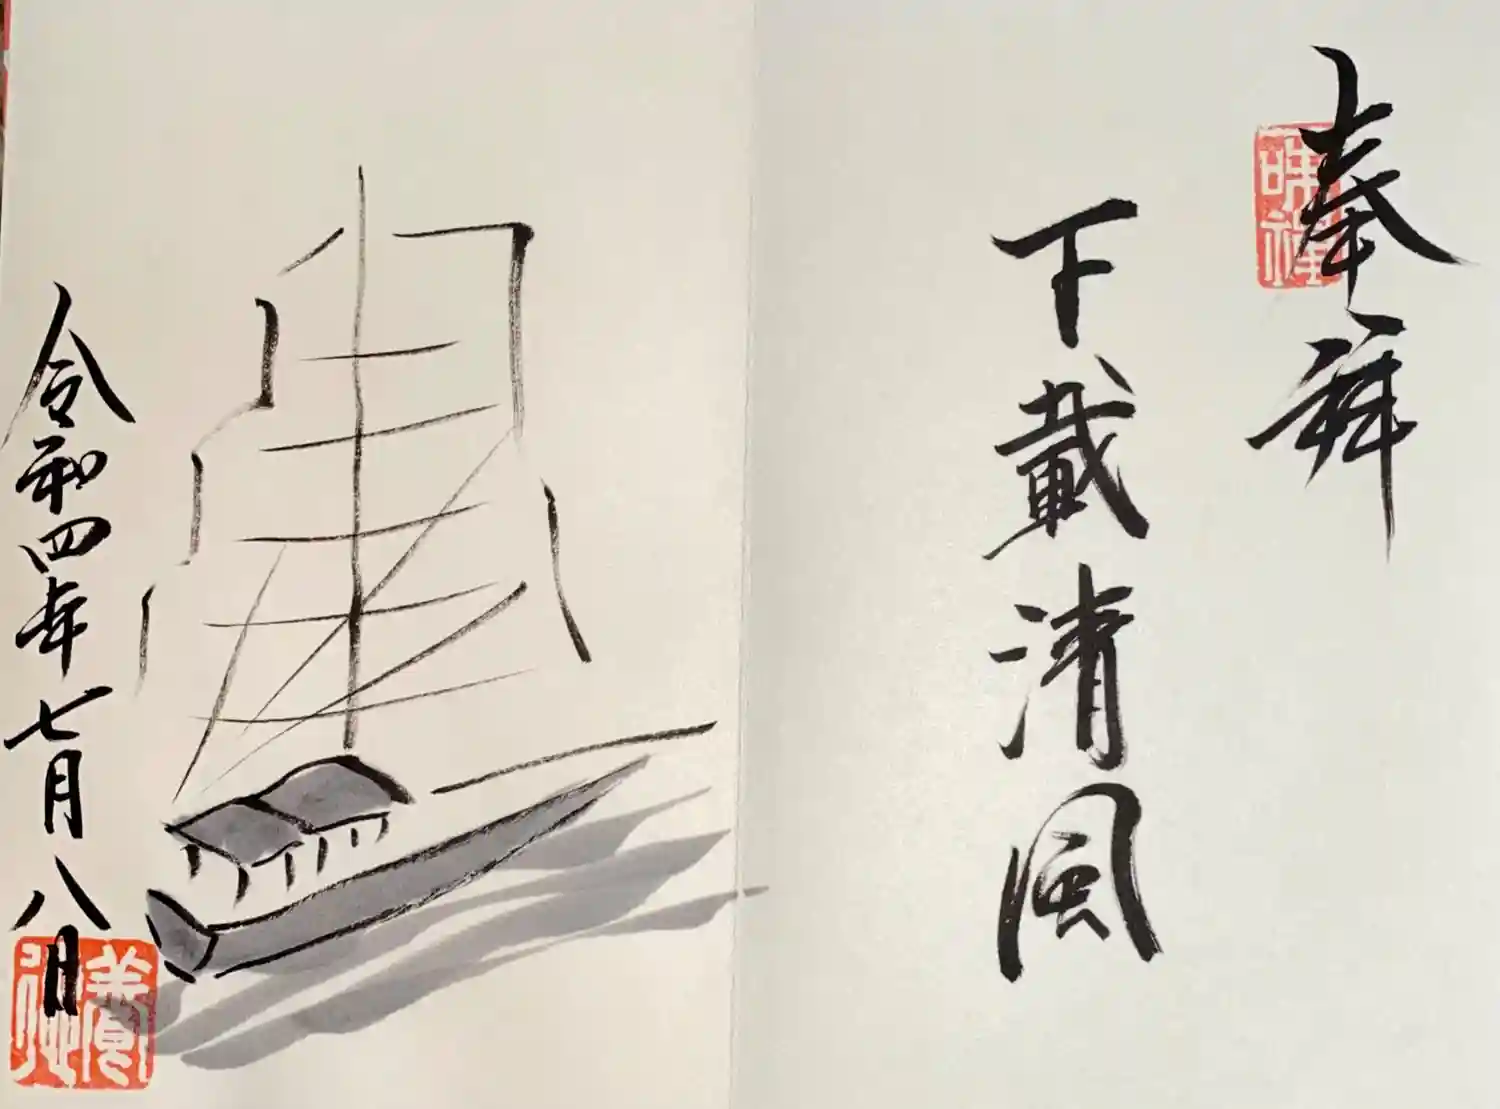 奉拝
下載清風
令和四年七月八日
養徳